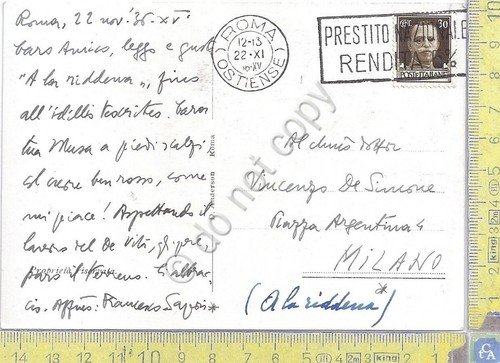 Roma, 22 nov. '36 - XV°
Caro Amico, leggo e gusto
"A la riddena", fino
all'idillio teocriteo. Cara
tua Musa a piedi scalzi
col cuore ben rosso, come
mi piace! Aspettando il
lavoro del De Viti, gli
il terreno. T'abbrac-
cio. Affmo: Francesco Sapori*
Proprietà riservata
Anderson Roma
ROMA
12-13
22·XI
OSTIENSE
PRESTITO
RENDITA
30
POSTE ITALIANE
Al chmo dottor
Vincenzo De Simone
Piazza Argentina 4
MILANO
*
(A la riddena)
do not copy